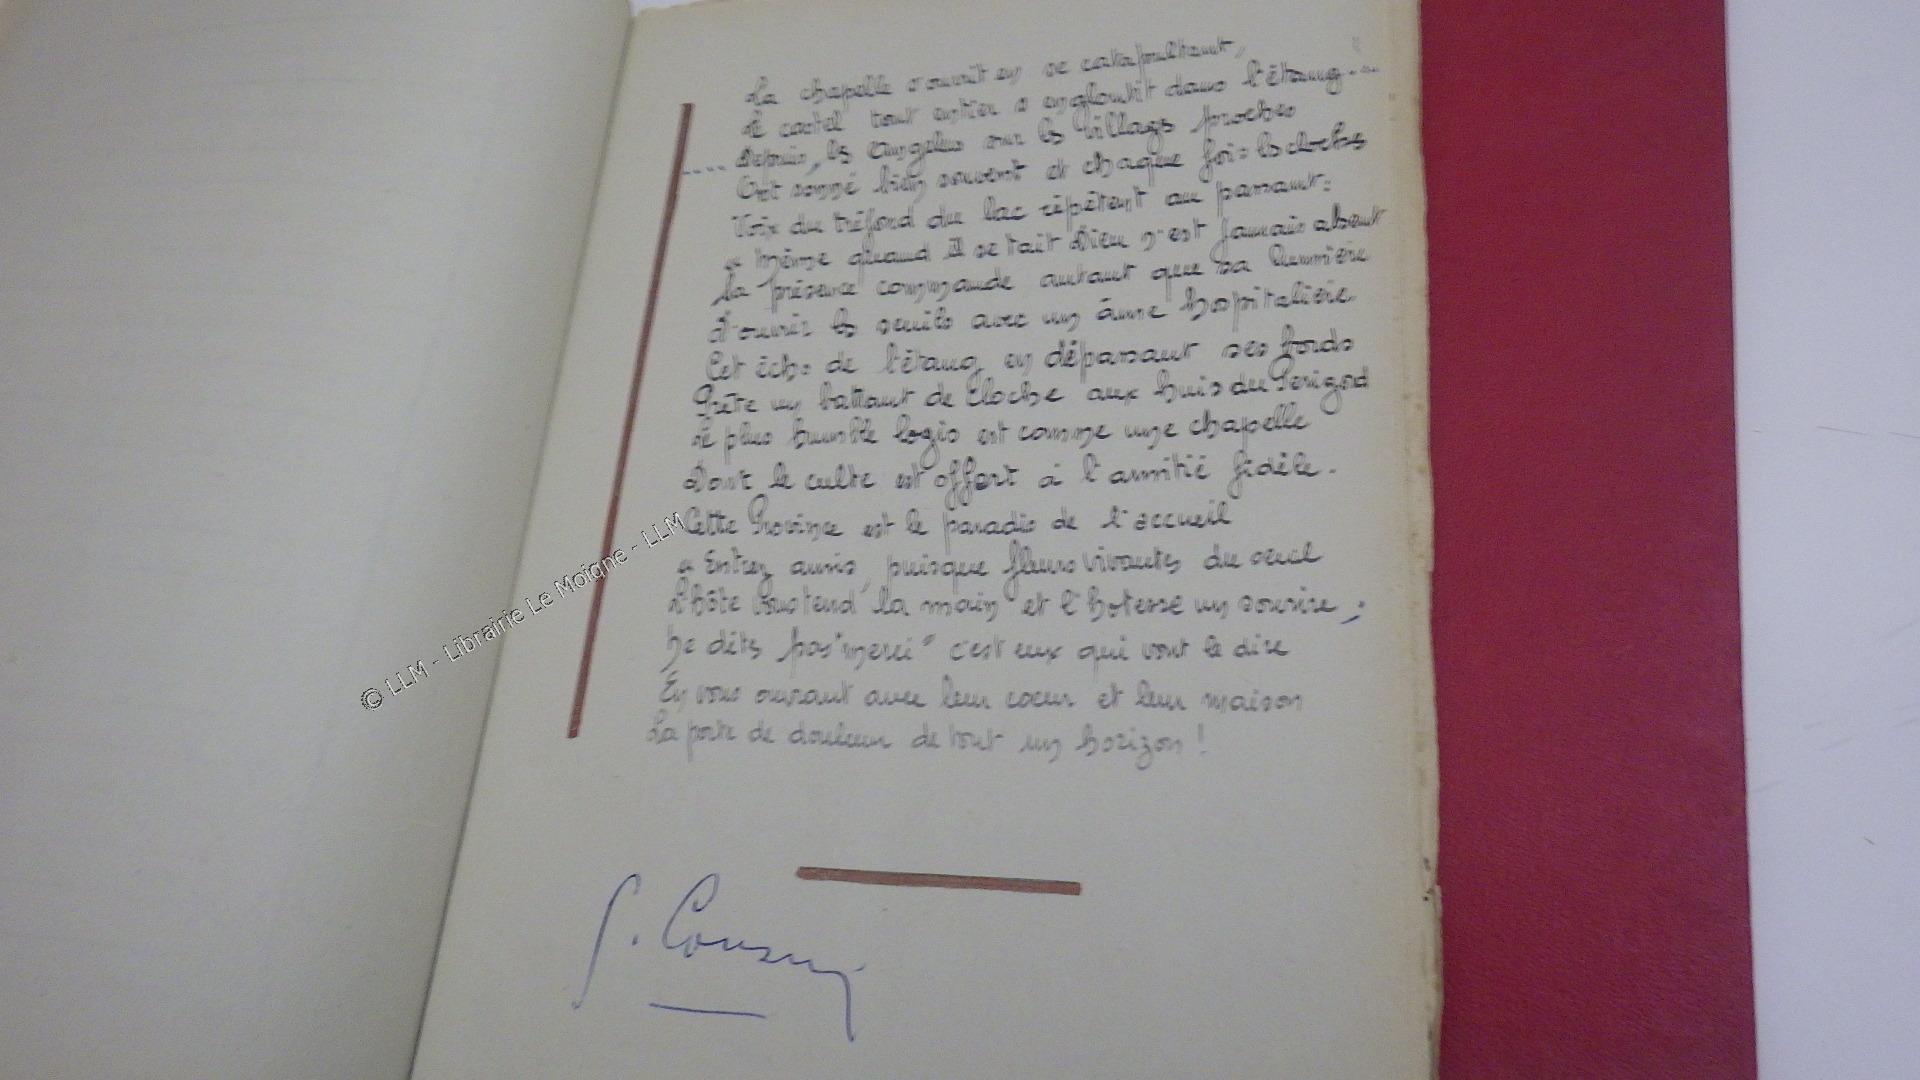 La chapelle s'ouvrit en se catapultant,
Le castel tout entier s'engloutit dans l'étang....
.... Depuis, les Angelus sur les villages proches
Ont sonné bien souvent et chaque fois les cloches
Voix du tréfond du lac répètent au passant:
« Même quand il se tait Dieu n'est jamais absent
Sa présence commande autant que sa lumière
D'ouvrir les seuils avec un âme hospitalière
Cet écho de l'étang en dépassant ses bords
Prête un battant de cloche aux huis du Perigord
Le plus humble logis est comme une chapelle
Dont le culte est offert à l'amitié fidèle.
Cette Province est le paradis de l'accueil
« Entrez amis, puisque fleurs vivantes du seuil
L'hôte vous tend la main et l'hotesse un sourire;
Ne dites pas "merci" c'est eux qui vont le dire
En vous ouvrant avec leur cœur et leur maison
La porte de douleur de tout un horizon!
© LLM - Librairie Le Moigne - LLM